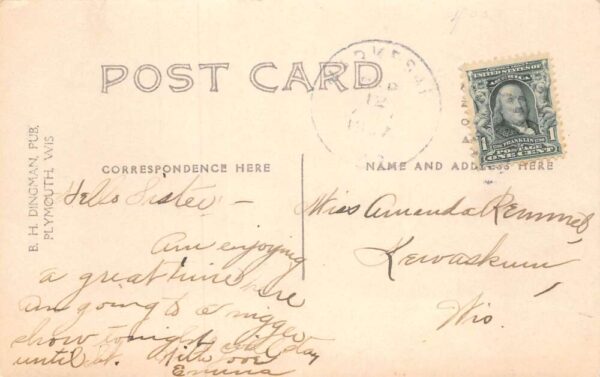 POST CARD
B. H. DINGMAN, PUB.
PLYMOUTH, WIS
UNITED STATES OF
AMERICA
1 FRANKLIN 1
POSTAGE
ONE CENT
CORRESPONDENCE HERE
NAME AND ADDRESS HERE
Hello Sister -
Am enjoying
a great time here
am going to a nigger
show tonight
until
Emma
Miss Amanda Remmel
Kewaskum
Wis.